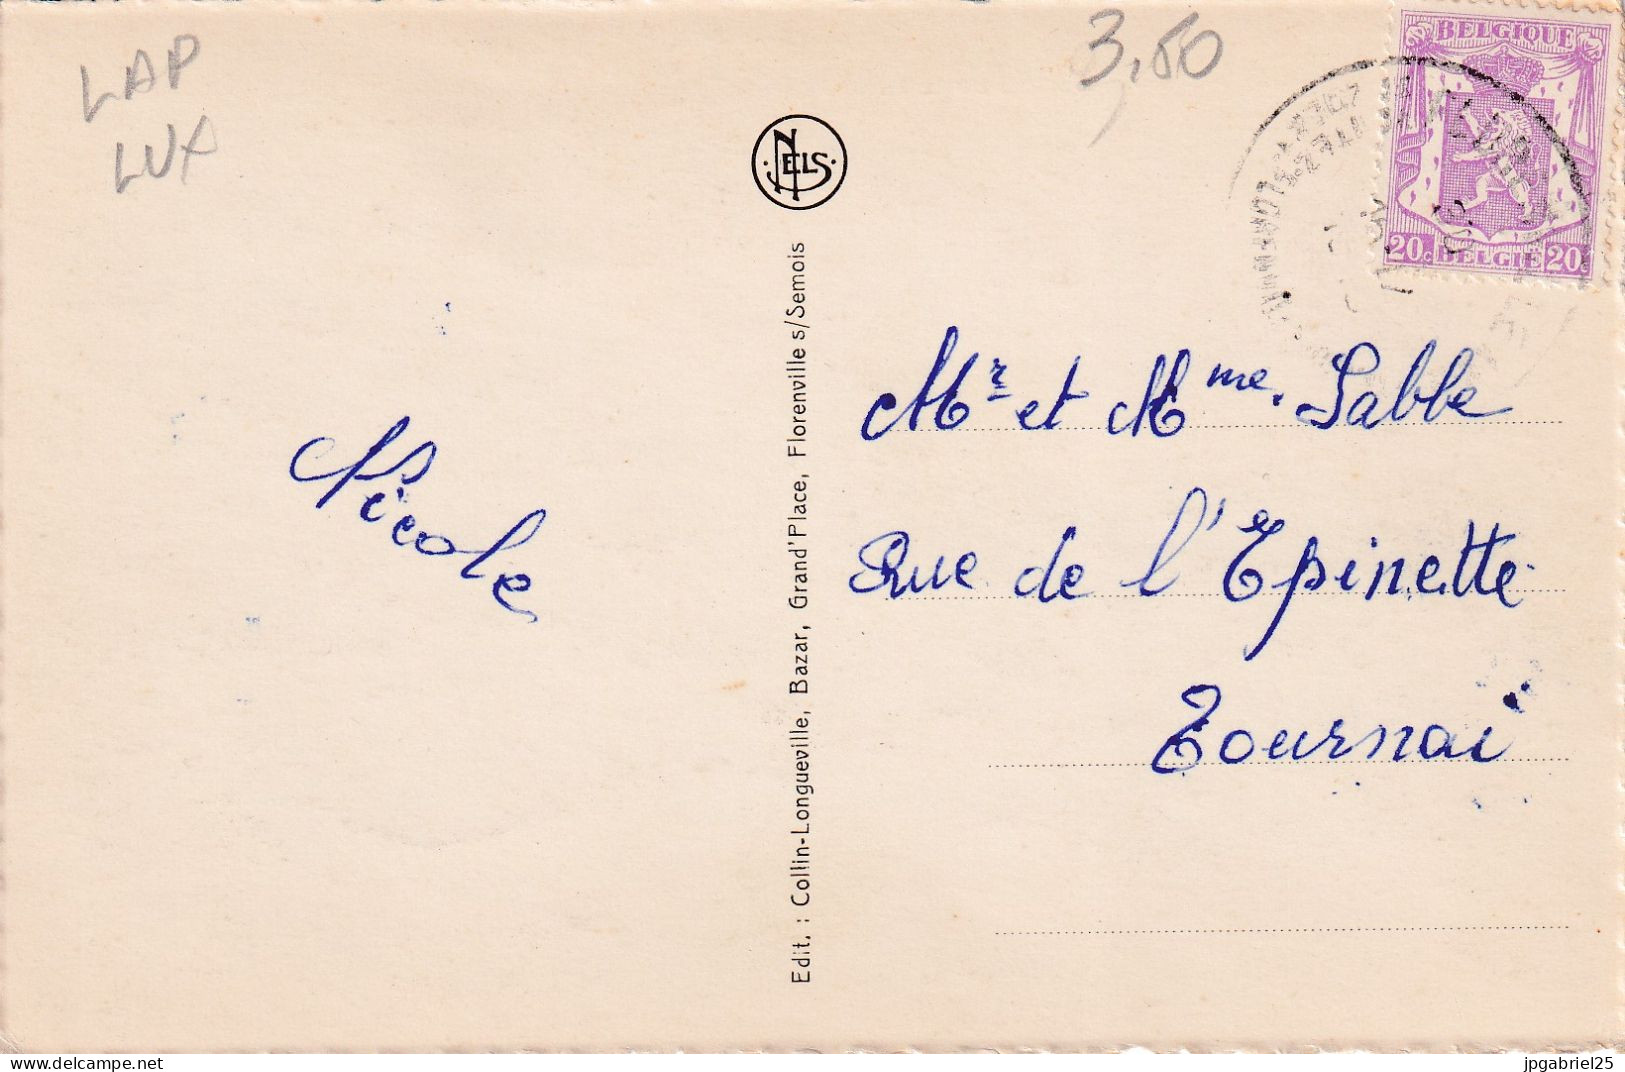 LAP
LUX
3,50
NELS
BELGIQUE
20c BELGIE 20c
Edit. : Collin-Longueville, Bazar, Grand'Place, Florenville s/Semois
Nicole
Mr et Mme. Labbe
Rue de l'Epinette
Tournai
www.delcampe.net
jpgabriel25